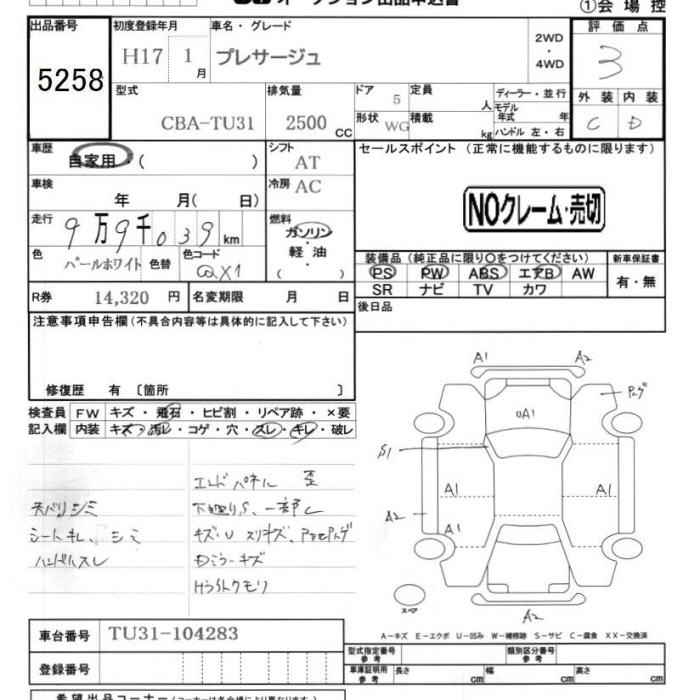 ①会場控
出品番号
5258
初度登録年月
H17 1月
車名・グレード
プレサージュ
2WD
・
4WD
評価点
3
外装 内装
C D
型式
CBA-TU31
排気量
2500 CC
ドア 5
定員 人
形状 WG
積載 kg
ディーラー・並行
モデル年式 年
ハンドル 左・右
車歴
自家用・( )
シフト
AT
車検
年 月( 日)
冷房 AC
走行
9万9千039 km
燃料
ガソリン
・
軽油
( )
色
パールホワイト
色替
色コード
QX1
R券 14,320 円
名変期限 月 日
セールスポイント (正常に機能するものに限ります)
NOクレーム・売切
装備品(純正品に限り○をつけてください)
PS PW ABS エアB AW
SR ナビ TV カワ
新車保証書
有・無
後日品
注意事項申告欄(不具合内容等は具体的に記入して下さい)
修復歴 有 〔箇所 〕
検査員 FW キズ・飛石・ヒビ割・リペア跡・×要
記入欄 内装 キズ・汚レ・コゲ・穴・スレ・キレ・破レ
エンドパネル 歪
天バリシミ
シートキレ、シミ
ハンドルスレ
下廻りS、一部し
Dミラーキズ
Hライトクモリ
A1 A2
A1
S1
A1 A1
A2
A1
A2
スペア
A−キズ E−エクボ U−凹み W−補修跡 S−サビ C−腐食 XX−交換済
車台番号 TU31-104283
登録番号
型式指定番号
参考
類別区分番号
参考
車庫証明用
参考
長さ cm 幅 cm 高さ cm